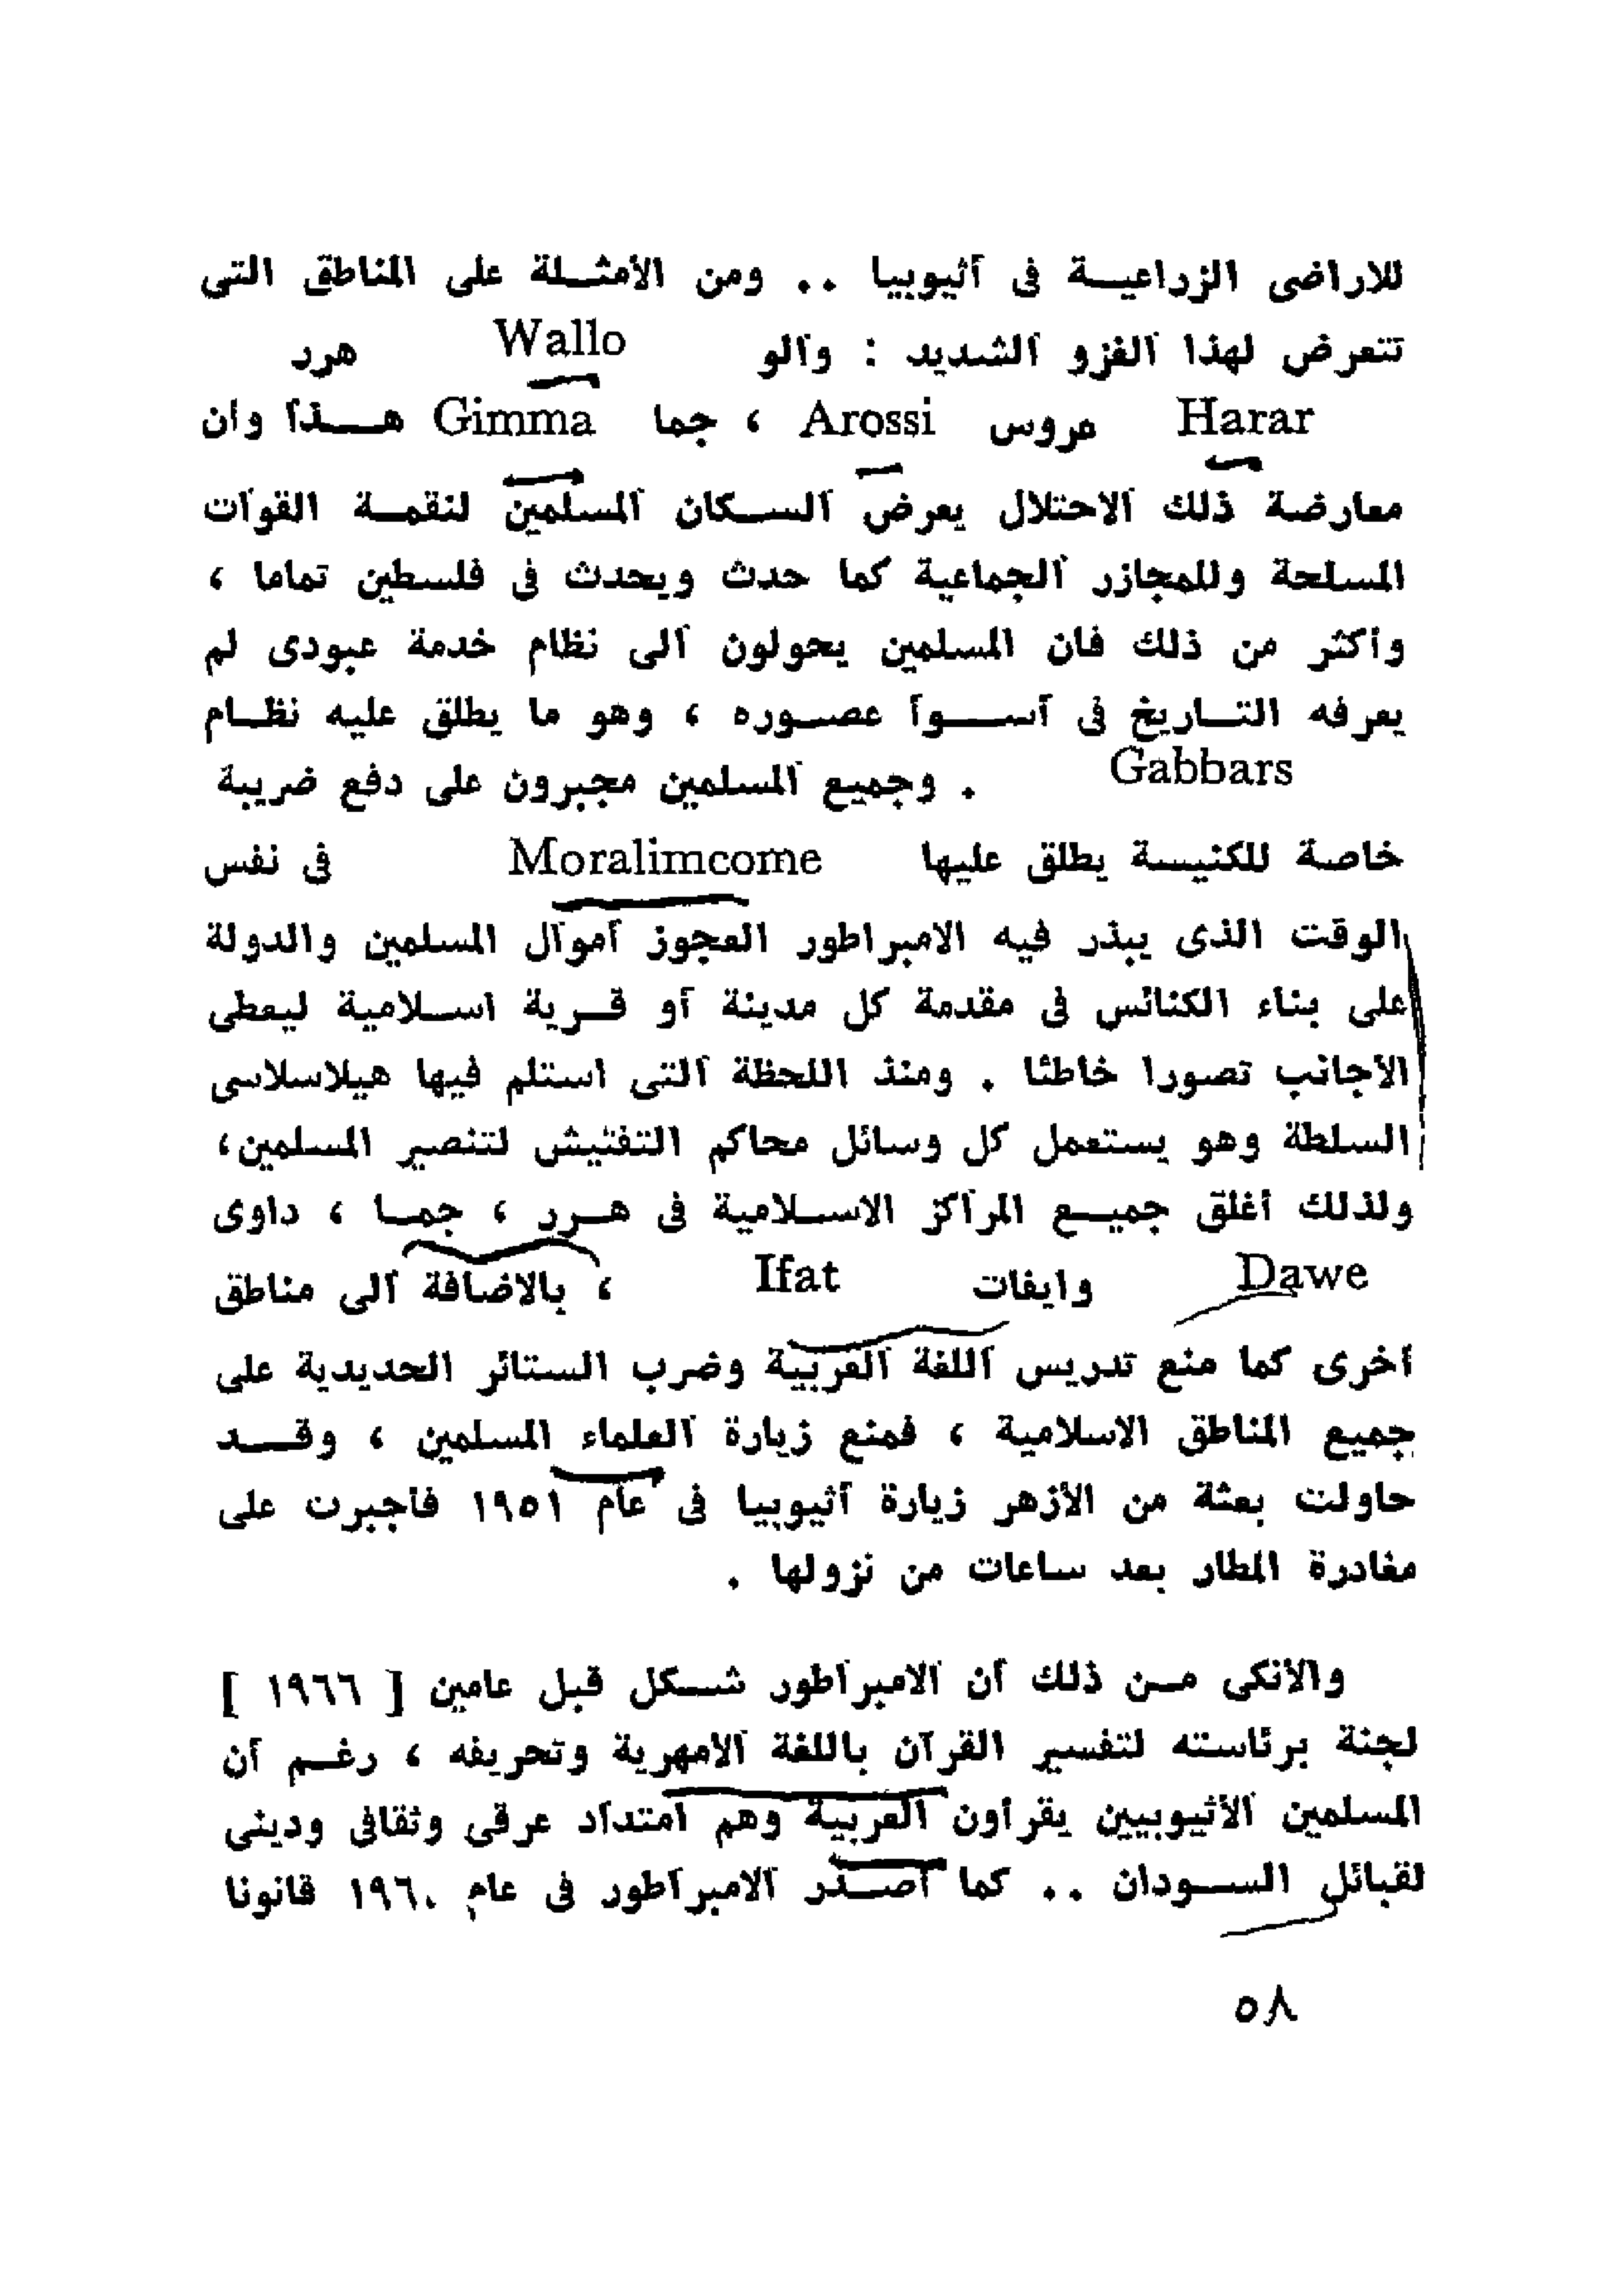 للاراضى الزراعيـة فى أثيوبيا .. ومن الأمثـلة على المناطق التى
تتعرض لهذا الغزو الشديد : والو Wallo هرر
Harar عروس Arossi ، جما Gimma هـذا وان
معارضة ذلك الاحتلال يعرض السـكان المسلمين لنقمـة القوات
المسلحة وللمجازر الجماعية كما حدث ويحدث فى فلسطين تماما ،
وأكثر من ذلك فان المسلمين يحولون الى نظام خدمة عبودى لم
يعرفه التـاريخ فى أسـوأ عصـوره ، وهو ما يطلق عليه نظـام
Gabbars . وجميع المسلمين مجبرون على دفع ضريبة
خاصة للكنيسـة يطلق عليها Moralimcome فى نفس
الوقت الذى يبذر فيه الامبراطور العجوز أموال المسلمين والدولة
على بناء الكنائس فى مقدمة كل مدينة أو قـرية اسـلامية ليعطى
الأجانب تصورا خاطئا . ومنذ اللحظة التى استلم فيها هيلاسلاسى
السلطة وهو يستعمل كل وسائل محاكم التفتيش لتنصير المسلمين،
ولذلك أغلق جميـع المراكز الاسـلامية فى هـرر ، جمـا ، داوى
Dawe وايفات Ifat ، بالاضافة الى مناطق
أخرى كما منع تدريس اللغة العربية وضرب الستائر الحديدية على
جميع المناطق الاسلامية ، فمنع زيارة العلماء المسلمين ، وقـد
حاولت بعثة من الأزهر زيارة أثيوبيا فى عام ١٩٥١ فأجبرت على
مغادرة المطار بعد ساعات من نزولها .
والأنكى مـن ذلك أن الامبراطور شـكل قبل عامين [ ١٩٦٦ ]
لجنة برئاسته لتفسير القرآن باللغة الامهرية وتحريفه ، رغـم أن
المسلمين الأثيوبيين يقرأون العربية وهم امتداد عرقى وثقافى ودينى
لقبائل السـودان .. كما أصـدر الامبراطور فى عام ١٩٦٠ قانونا
٥٨